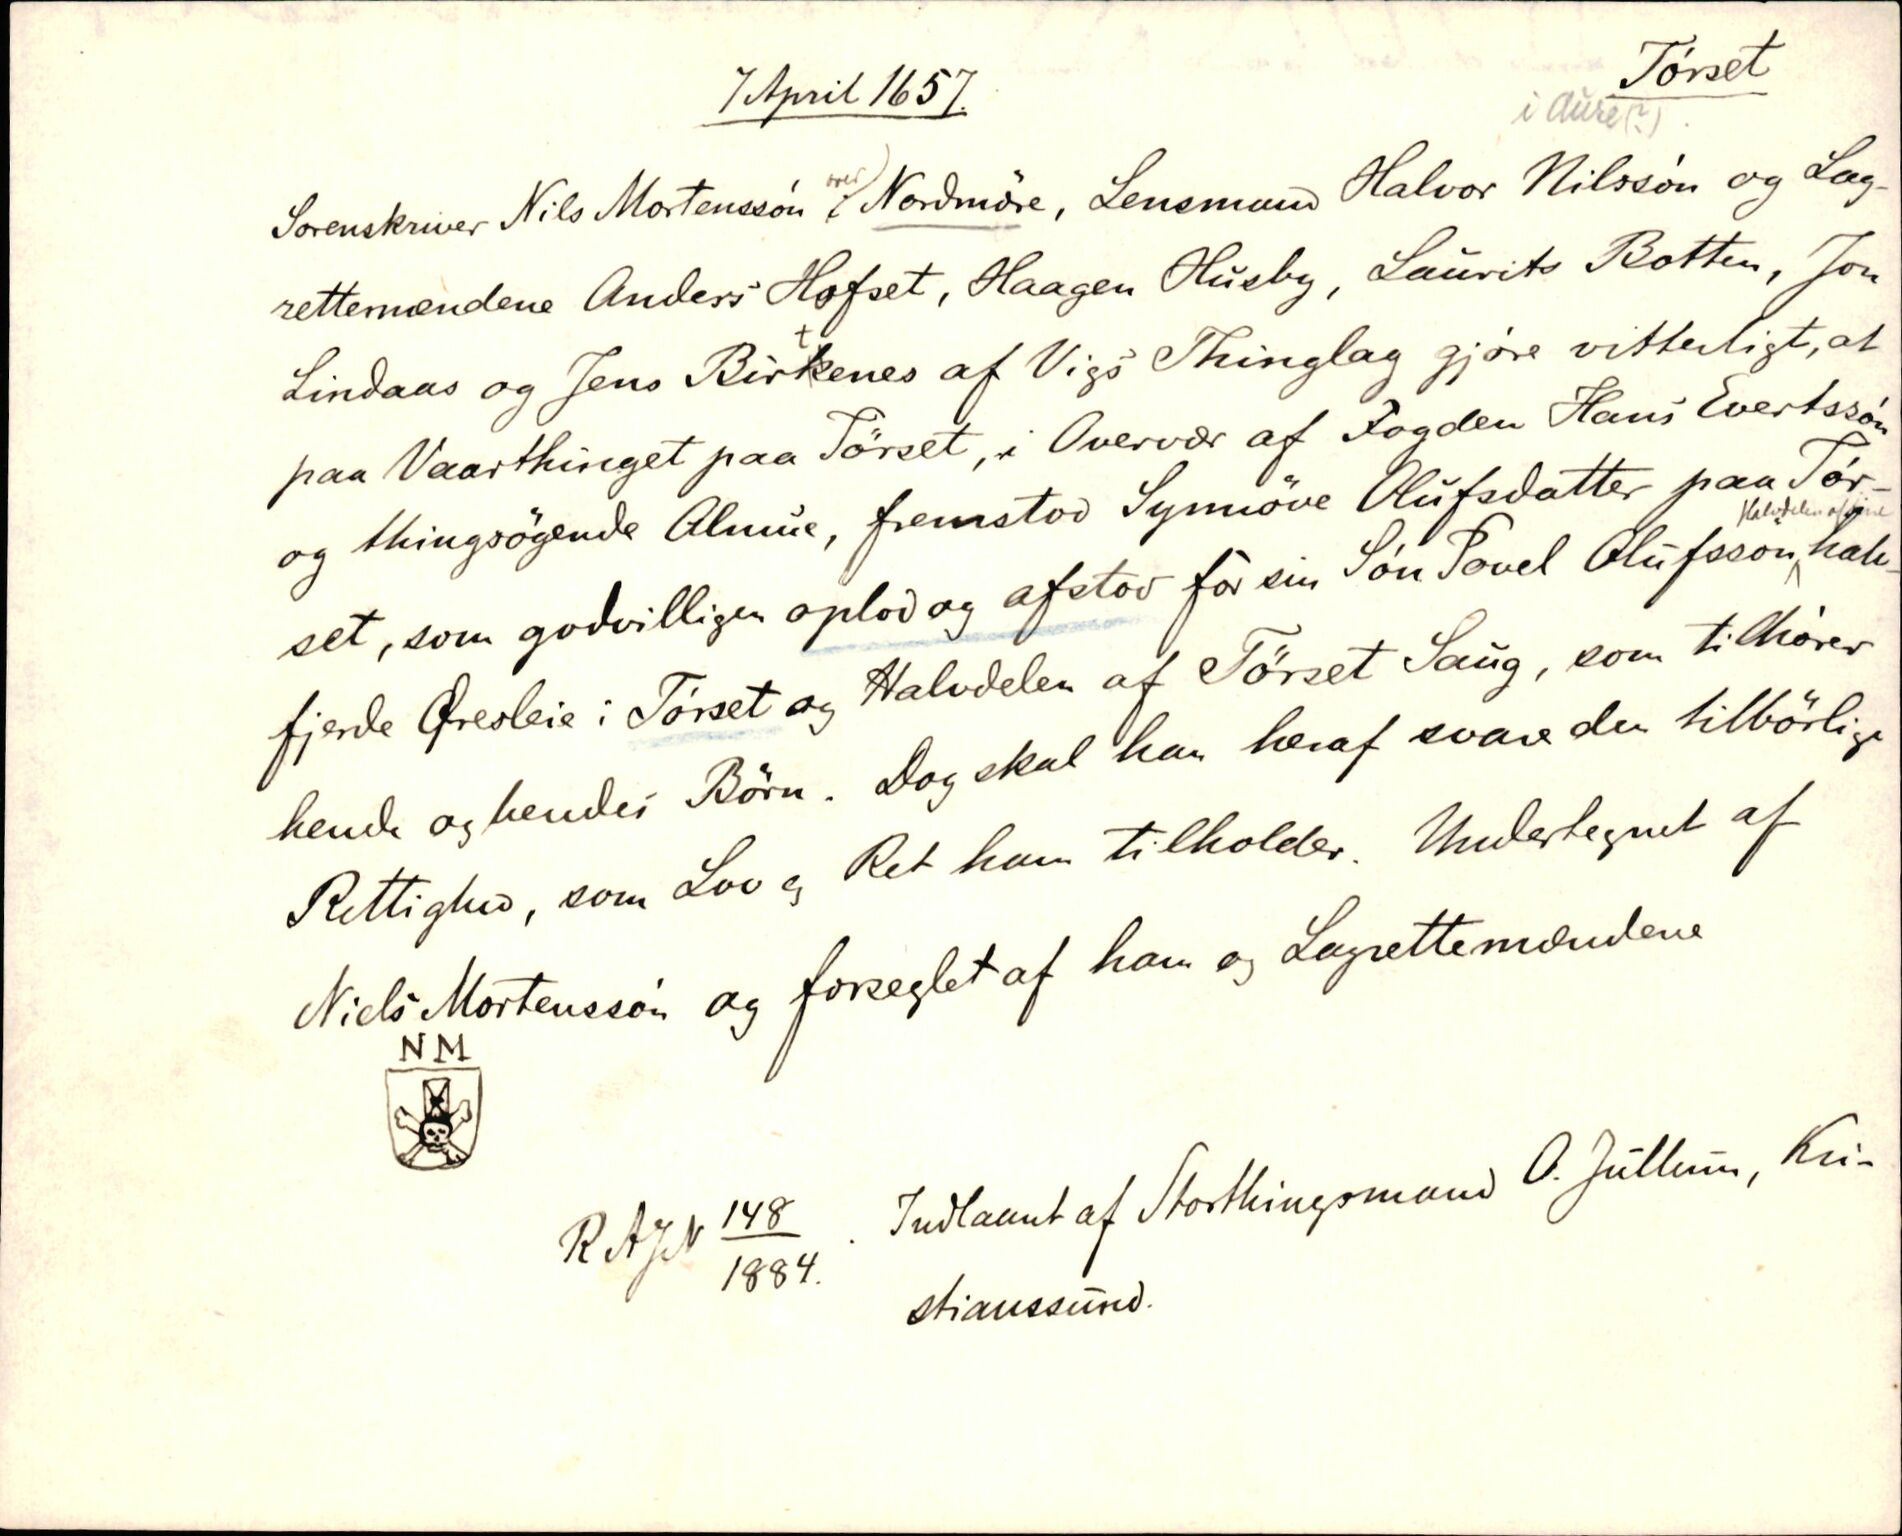 7 April 1657.
Törset
i Aure (?)
Sorenskriver Nils Mortenssön over Nordmöre, Lensmand Halvor Nilssön og Lag-
rettemændene Anders Hofset, Haagen Husby, Laurits Botten, Jon
Lindaas og Jens Birkenes af Vigs Thinglag gjöre vitterligt, at
paa Vaarthinget paa Törset, i Overvær af Fogden Hans Evertssön
og thingsögende Almue, fremstod Synnöve Olufsdatter paa Tör-
set, som godvilligen oplod og afstod for sin Sön Povel Olufssön Halvdelen af sine halv-
fjerde Øresleie i Törset og Halvdelen af Törset Saug, som tilhörer
hende og hendes Börn. Dog skal han heraf svare den tilbörlige
Rettighed, som Lov og Ret ham tilholder. Undertegnet af
Niels Mortenssön og forseglet af ham og Lagrettemændene
N M
R A J N 148/1884. Indlaant af Storthingsmand O. Jullum, Kri-
stianssund.